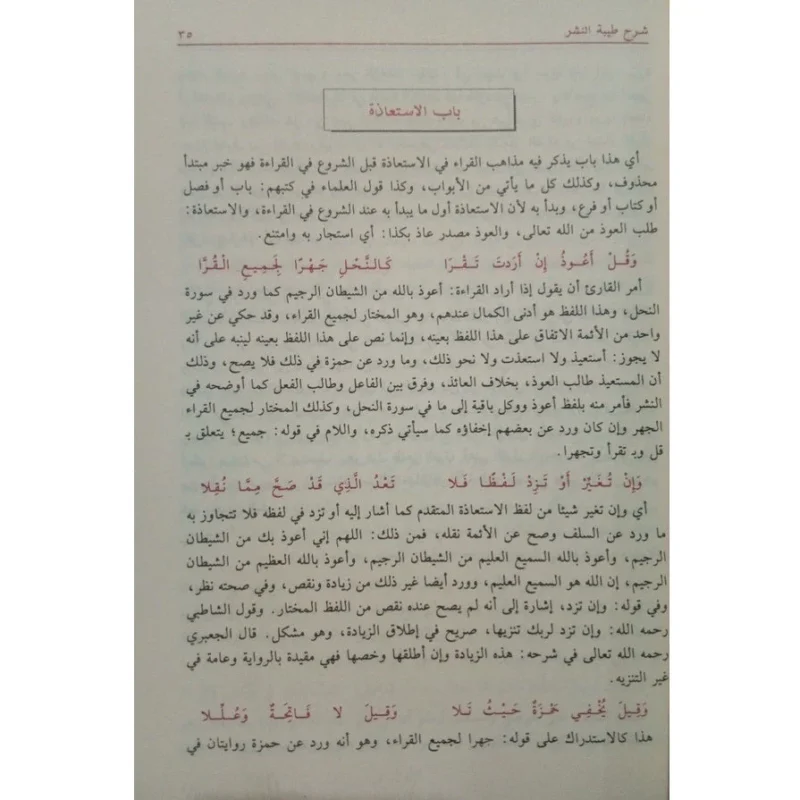 شرح طيبة النشر ٣٥
باب الاستعاذة
أي هذا باب يذكر فيه مذاهب القراء في الاستعاذة قبل الشروع في القراءة فهو خبر مبتدأ
محذوف، وكذلك كل ما يأتي من الأبواب، وكذا قول العلماء في كتبهم: باب أو فصل
أو كتاب أو فرع، وبدأ به لأن الاستعاذة أول ما يبدأ به عند الشروع في القراءة، والاستعاذة:
طلب العوذ من الله تعالى، والعوذ مصدر عاذ بكذا: أي استجار به وامتنع.
وَقُلْ أَعُوذُ إِنْ أَرَدتَ تَقْرَا كَالنَّحْلِ جَهْرًا لِجَمِيعِ الْقُرَّا
أمر القارئ أن يقول إذا أراد القراءة: أعوذ بالله من الشيطان الرجيم كما ورد في سورة
النحل، وهذا اللفظ هو أدنى الكمال عندهم، وهو المختار لجميع القراء، وقد حكي عن غير
واحد من الأئمة الاتفاق على هذا اللفظ بعينه، وإنما نص على هذا اللفظ بعينه لينبه على أنه
لا يجوز: أستعيذ ولا استعذت ولا نحو ذلك، وما ورد عن حمزة في ذلك فلا يصح، وذلك
أن المستعيذ طالب العوذ، بخلاف العائذ، وفرق بين الفاعل وطالب الفعل كما أوضحه في
النشر فأمر منه بلفظ أعوذ ووكل باقية إلى ما في سورة النحل، وكذلك المختار لجميع القراء
الجهر وإن كان ورد عن بعضهم إخفاؤه كما سيأتي ذكره، واللام في قوله: جميع؛ يتعلق بـ
قل وبـ تقرأ وتجهرا.
وَإِنْ تُغَيِّرْ أَوْ تَزِدْ لَفْظًا فَلَا تَعْدُ الَّذِي قَدْ صَحَّ مِمَّا نُقِلا
أي وإن تغير شيئا من لفظ الاستعاذة المتقدم كما أشار إليه أو تزد في لفظه فلا تتجاوز به
ما ورد عن السلف وصح عن الأئمة نقله، فمن ذلك: اللهم إني أعوذ بك من الشيطان
الرجيم، وأعوذ بالله السميع العليم من الشيطان الرجيم، وأعوذ بالله العظيم من الشيطان
الرجيم، إن الله هو السميع العليم، وورد أيضا غير ذلك من زيادة ونقص، وفي صحته نظر،
وفي قوله: وإن تزد، إشارة إلى أنه لم يصح عنده نقص من اللفظ المختار. وقول الشاطبي
رحمه الله: وإن تزد لربك تنزيها، صريح في إطلاق الزيادة، وهو مشكل. قال الجعبري
رحمه الله تعالى في شرحه: هذه الزيادة وإن أطلقها وخصها فهي مقيدة بالرواية وعامة في
غير التنزيه.
وَقِيلَ يُخْفِي حَمْزَةٌ حَيْثُ تَلا وَقِيلَ لا فَاتِحَةٌ وَعُلِّلا
هذا كالاستدراك على قوله: جهرا لجميع القراء، وهو أنه ورد عن حمزة روايتان في